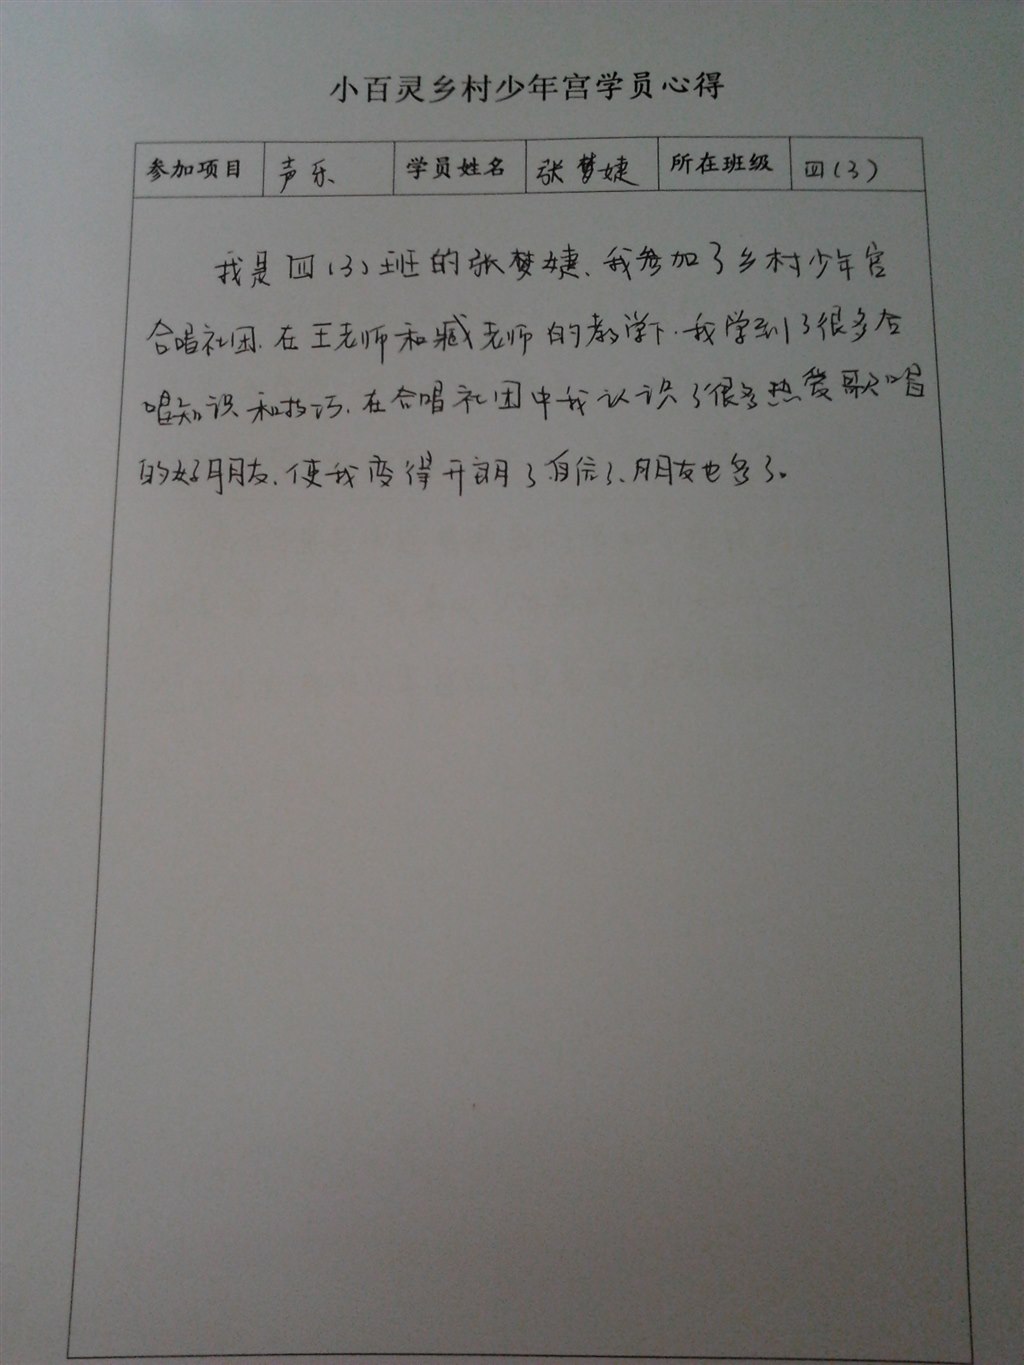 小百灵乡村少年宫学员心得
参加项目 声乐 学员姓名 张梦婕 所在班级 四(3)
我是四(3)班的张梦婕、我参加了乡村少年宫
合唱社团.在王老师和臧老师的教学下.我学到了很多合
唱知识和技巧.在合唱社团中我认识了很多热爱歌唱
的好朋友.使我变得开朗了自信了、朋友也多了。